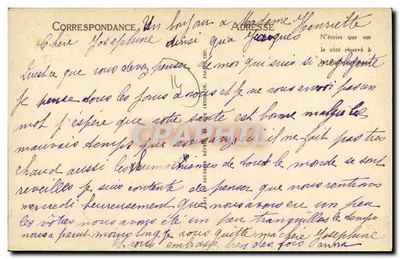 CORRESPONDANCE
ADRESSE
Un bonjour a Madame Henriette
Chère Joséphine ainsi qu'a Jacques
N'écrire que sur
le côté réservé à
Qu'est ce que vous devez penser de moi qui suis si négligente
Je pense tous les jours a vous et je ne vous envoi pas un
mot J'espère que votre santé est bonne malgré le
mauvais temps que nous avons il ne fait pas très
chaud aussi les rhumatismes de tout le monde se sont
reveillés Je suis contente de penser que nous rentrons
mercredi heureusement que nous avons eu un peu
les vôtres nous avons été un peu tranquilles le temps
nous a parut moins long Je vous quitte ma chère Joséphine
et vous embrasse bien des fois